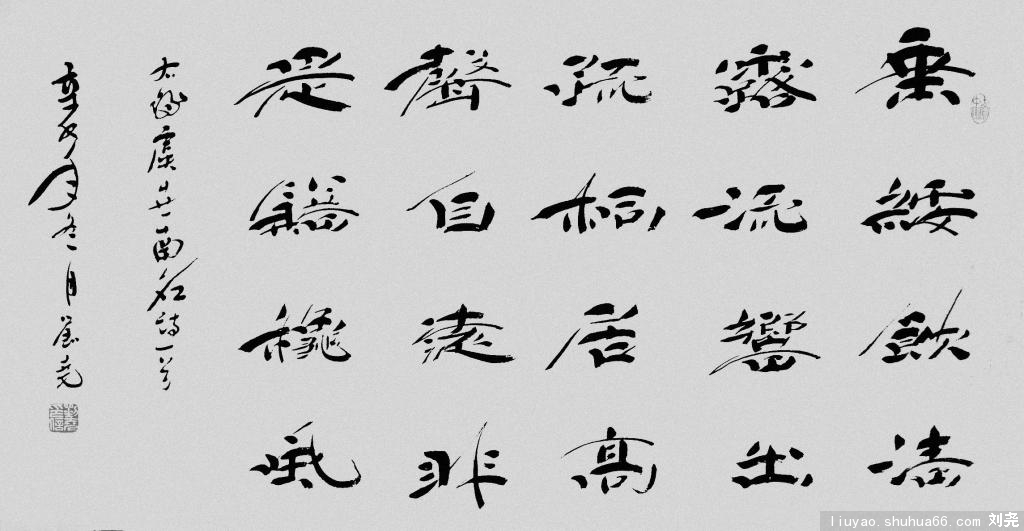 垂緌飲清
露流響出
疏桐居高
聲自遠非
是藉龝風
右錄虞世南名詩一首
辛丑年冬月劉堯
liuyao.shuhua66.com 刘尧